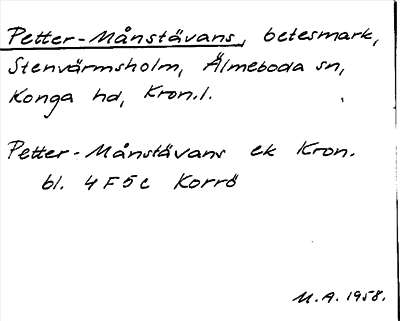 Petter-Månstävans, betesmark,
Stenvärmsholm, Älmeboda sn,
Konga hd, Kron.l.
Petter-Månstävans ek Kron.
bl. 4F5c Korrö
M.A. 1958.